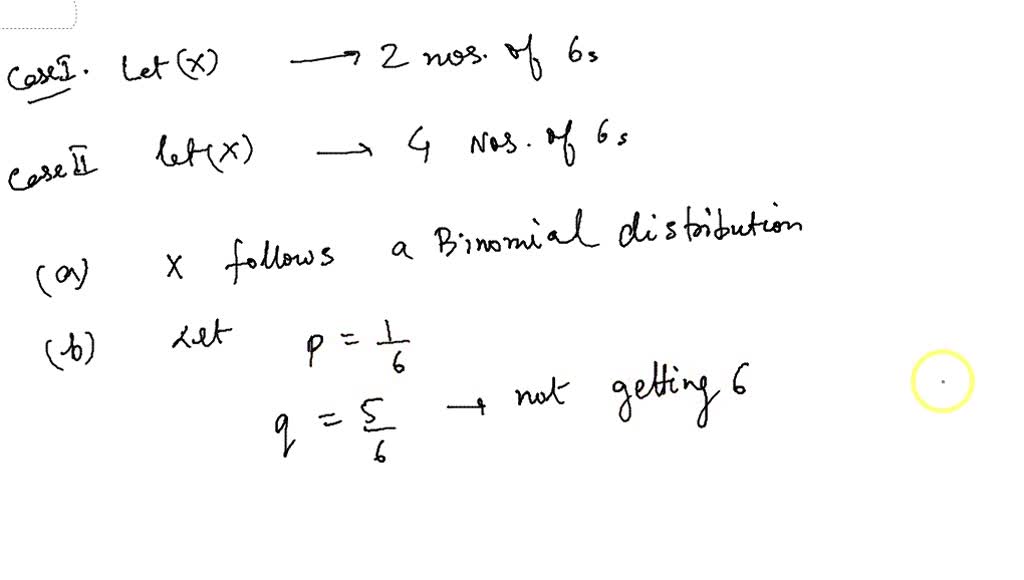 Case I. Let (X) → 2 nos. of 6s
Case II let (X) → 4 Nos. of 6s
(a) X follows a Binomial distribution
(b) Let p = 1/6
q = 5/6 → not getting 6